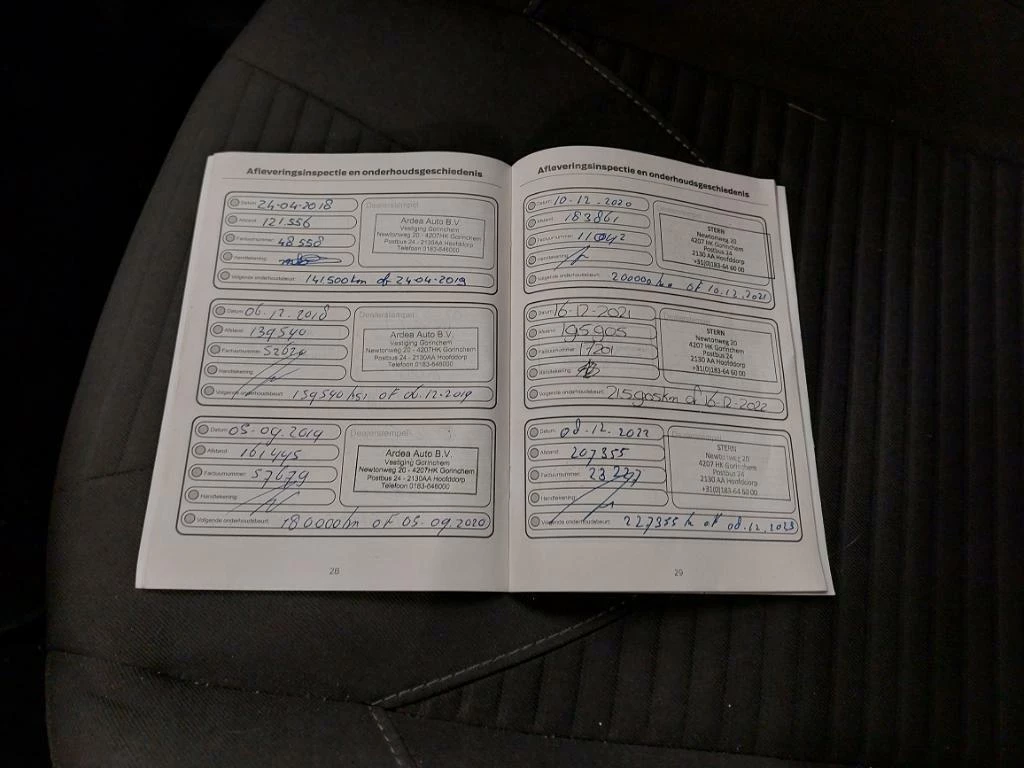 Afleveringsinspectie en onderhoudsgeschiedenis
Datum: 24-04-2018
Afstand: 121.556
Factuurnummer: 48558
Handtekening:
Dealerstempel
Ardea Auto B.V.
Vestiging Gorinchem
Newtonweg 20 - 4207HK Gorinchem
Postbus 24 - 2130AA Hoofddorp
Telefoon 0183-646000
Volgende onderhoudsbeurt: 141.500km of 24-04-2019
Datum: 06.12.2018
Afstand: 139540
Factuurnummer:
Handtekening:
Dealerstempel
Ardea Auto B.V.
Vestiging Gorinchem
Newtonweg 20 - 4207HK Gorinchem
Postbus 24 - 2130AA Hoofddorp
Telefoon 0183-646000
Volgende onderhoudsbeurt: 159540 of 06.12-2019
Datum: 05-09.2019
Afstand: 161445
Factuurnummer: 57079
Handtekening:
Dealerstempel
Ardea Auto B.V.
Vestiging Gorinchem
Newtonweg 20 - 4207HK Gorinchem
Postbus 24 - 2130AA Hoofddorp
Telefoon 0183-646000
Volgende onderhoudsbeurt: 180000km of 05-09.2020
28
Afleveringsinspectie en onderhoudsgeschiedenis
Datum: 10-12.2020
Afstand: 183861
Factuurnummer: 11042
Handtekening:
STERN
Newtonweg 20
4207 HK Gorinchem
Postbus 24
2130 AA Hoofddorp
+31(0)183-64 60 00
Volgende onderhoudsbeurt: 20000km of 10.12.2021
Datum: 16-12-2021
Afstand: 195905
Factuurnummer: 17201
Handtekening:
STERN
Newtonweg 20
4207 HK Gorinchem
Postbus 24
2130 AA Hoofddorp
+31(0)183-64 60 00
Volgende onderhoudsbeurt: 215905km of 16-12-2022
Datum: 08.12.2022
Afstand: 207355
Factuurnummer: 23227
Handtekening:
STERN
Newtonweg 20
4207 HK Gorinchem
Postbus 24
2130 AA Hoofddorp
+31(0)183-64 60 00
Volgende onderhoudsbeurt: 227355 k of 08.12.2023
29